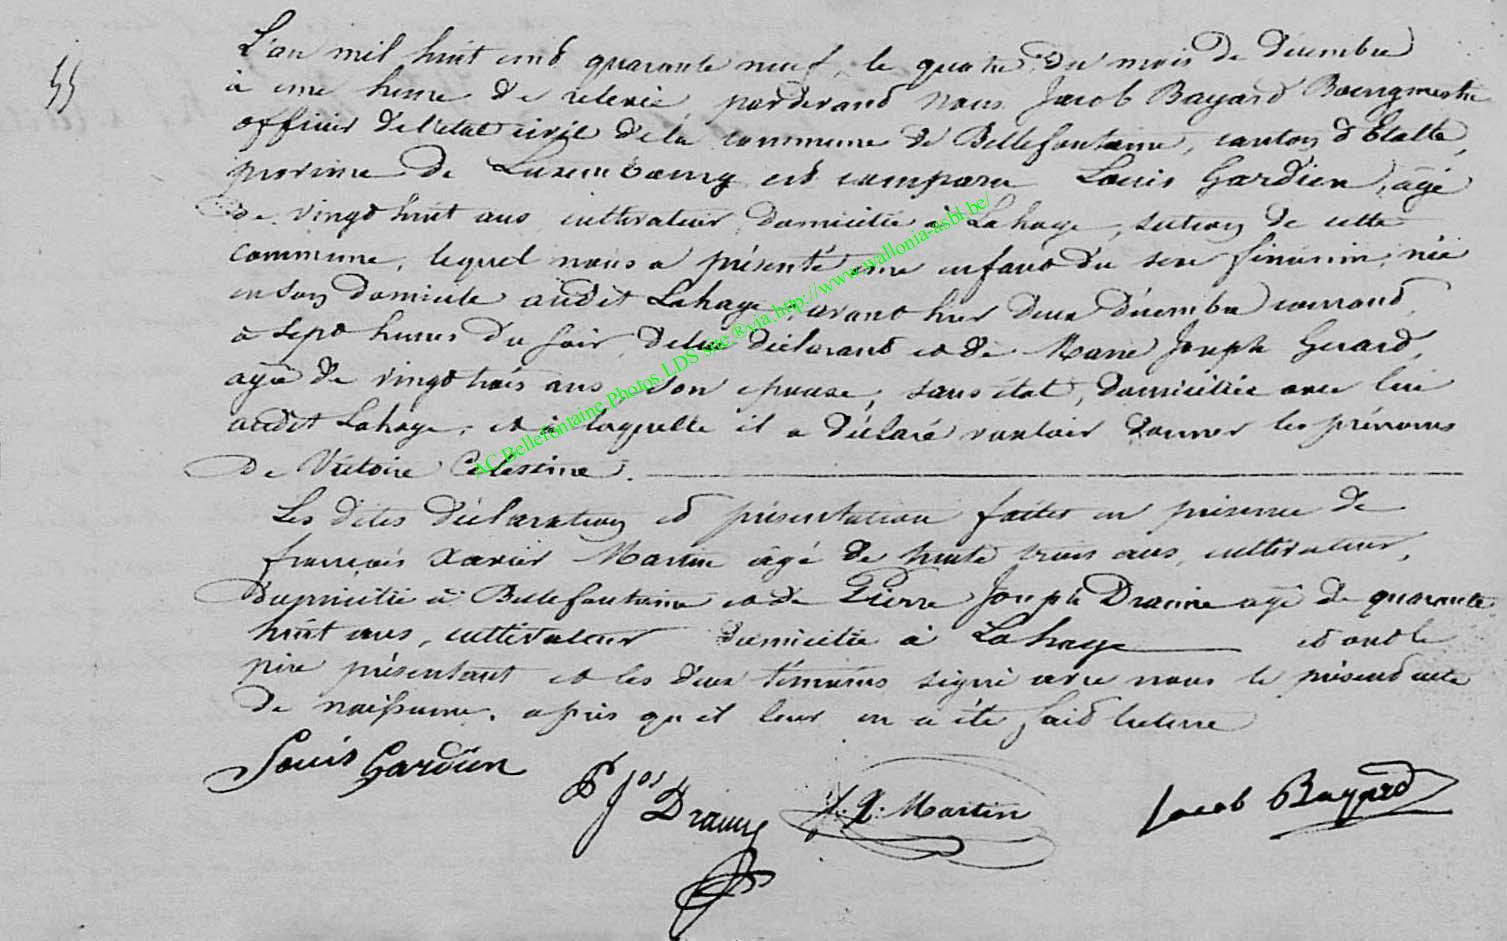 55
L'an mil huit cent quarante neuf, le quatre du mois de décembre
à une heure de relevée pardevant nous Jacob Bayard Bourgmestre
officier de l'état civil de la commune de Bellefontaine, canton d'Etalle,
province de Luxembourg est comparu Louis Gardien, âgé
de vingt huit ans cultivateur domicilié à Lahage, section de cette
commune, lequel nous a présenté une enfant du sexe féminin, née
en son domicile audit Lahage, avant hier deux décembre courant,
à sept heures du soir, de lui déclarant et de Marie Joseph Gerard,
agée de vingt trois ans son épouse, sans état, domiciliée avec lui
audit Lahage, et à laquelle il a déclaré vouloir donner les prénoms
de Victoire Celestine.
Les dites déclaration et présentation faites en présence de
françois Xavier Martin âgé de trente trois ans, cultivateur,
domicilié à Bellefontaine et de Pierre Joseph agé de quarante
huit ans, cultivateur domicilié à Lahage et ont le
père présentant et les deux témoins signé avec nous le présent acte
de naissance, après qu'il leur en a été fait lecture
Louis Gardien
P Jos
f. x. Martin
Jacob Bayard
AC Bellefontaine Photos LDS site ®via http://www.wallonia-asbl.be/